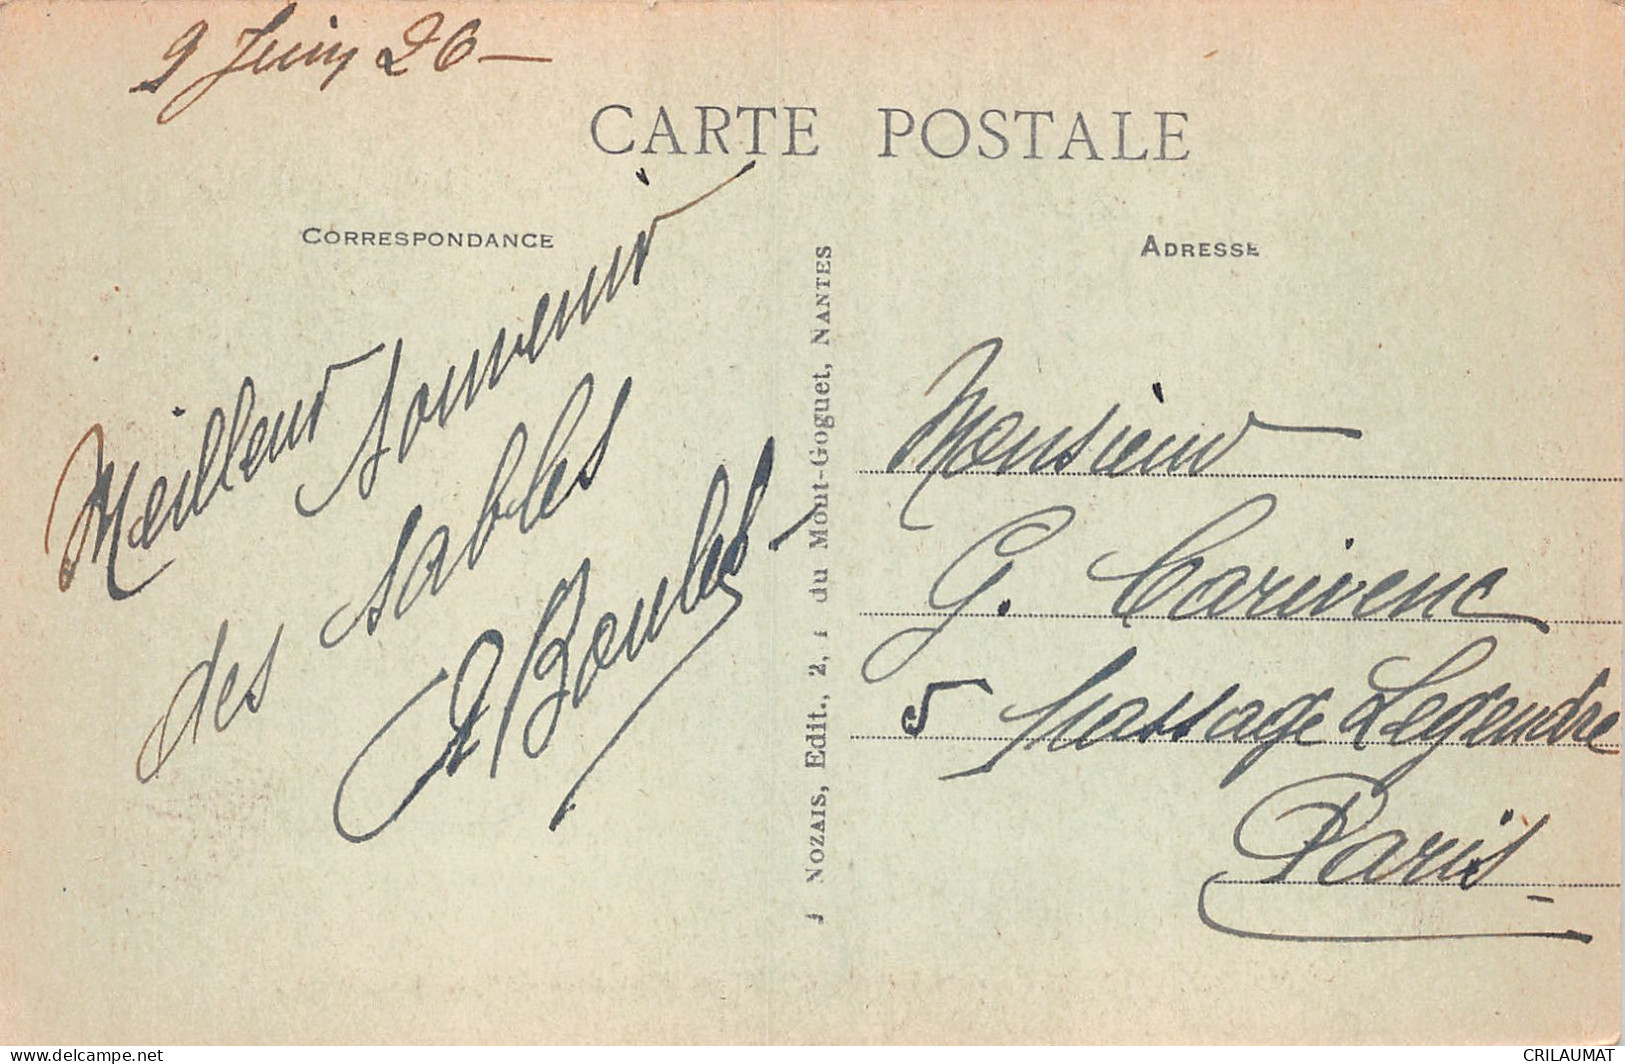 9 Juin 26 —
CARTE POSTALE
CORRESPONDANCE
ADRESSE
Meilleur souvenir
des sables
Boulet
J NOZAIS, Edit., 2, r du Mont-Goguet, NANTES
Monsieur
G. Carivenc
5 passage Legendre
Paris —
www.delcampe.net
CRILAUMAT